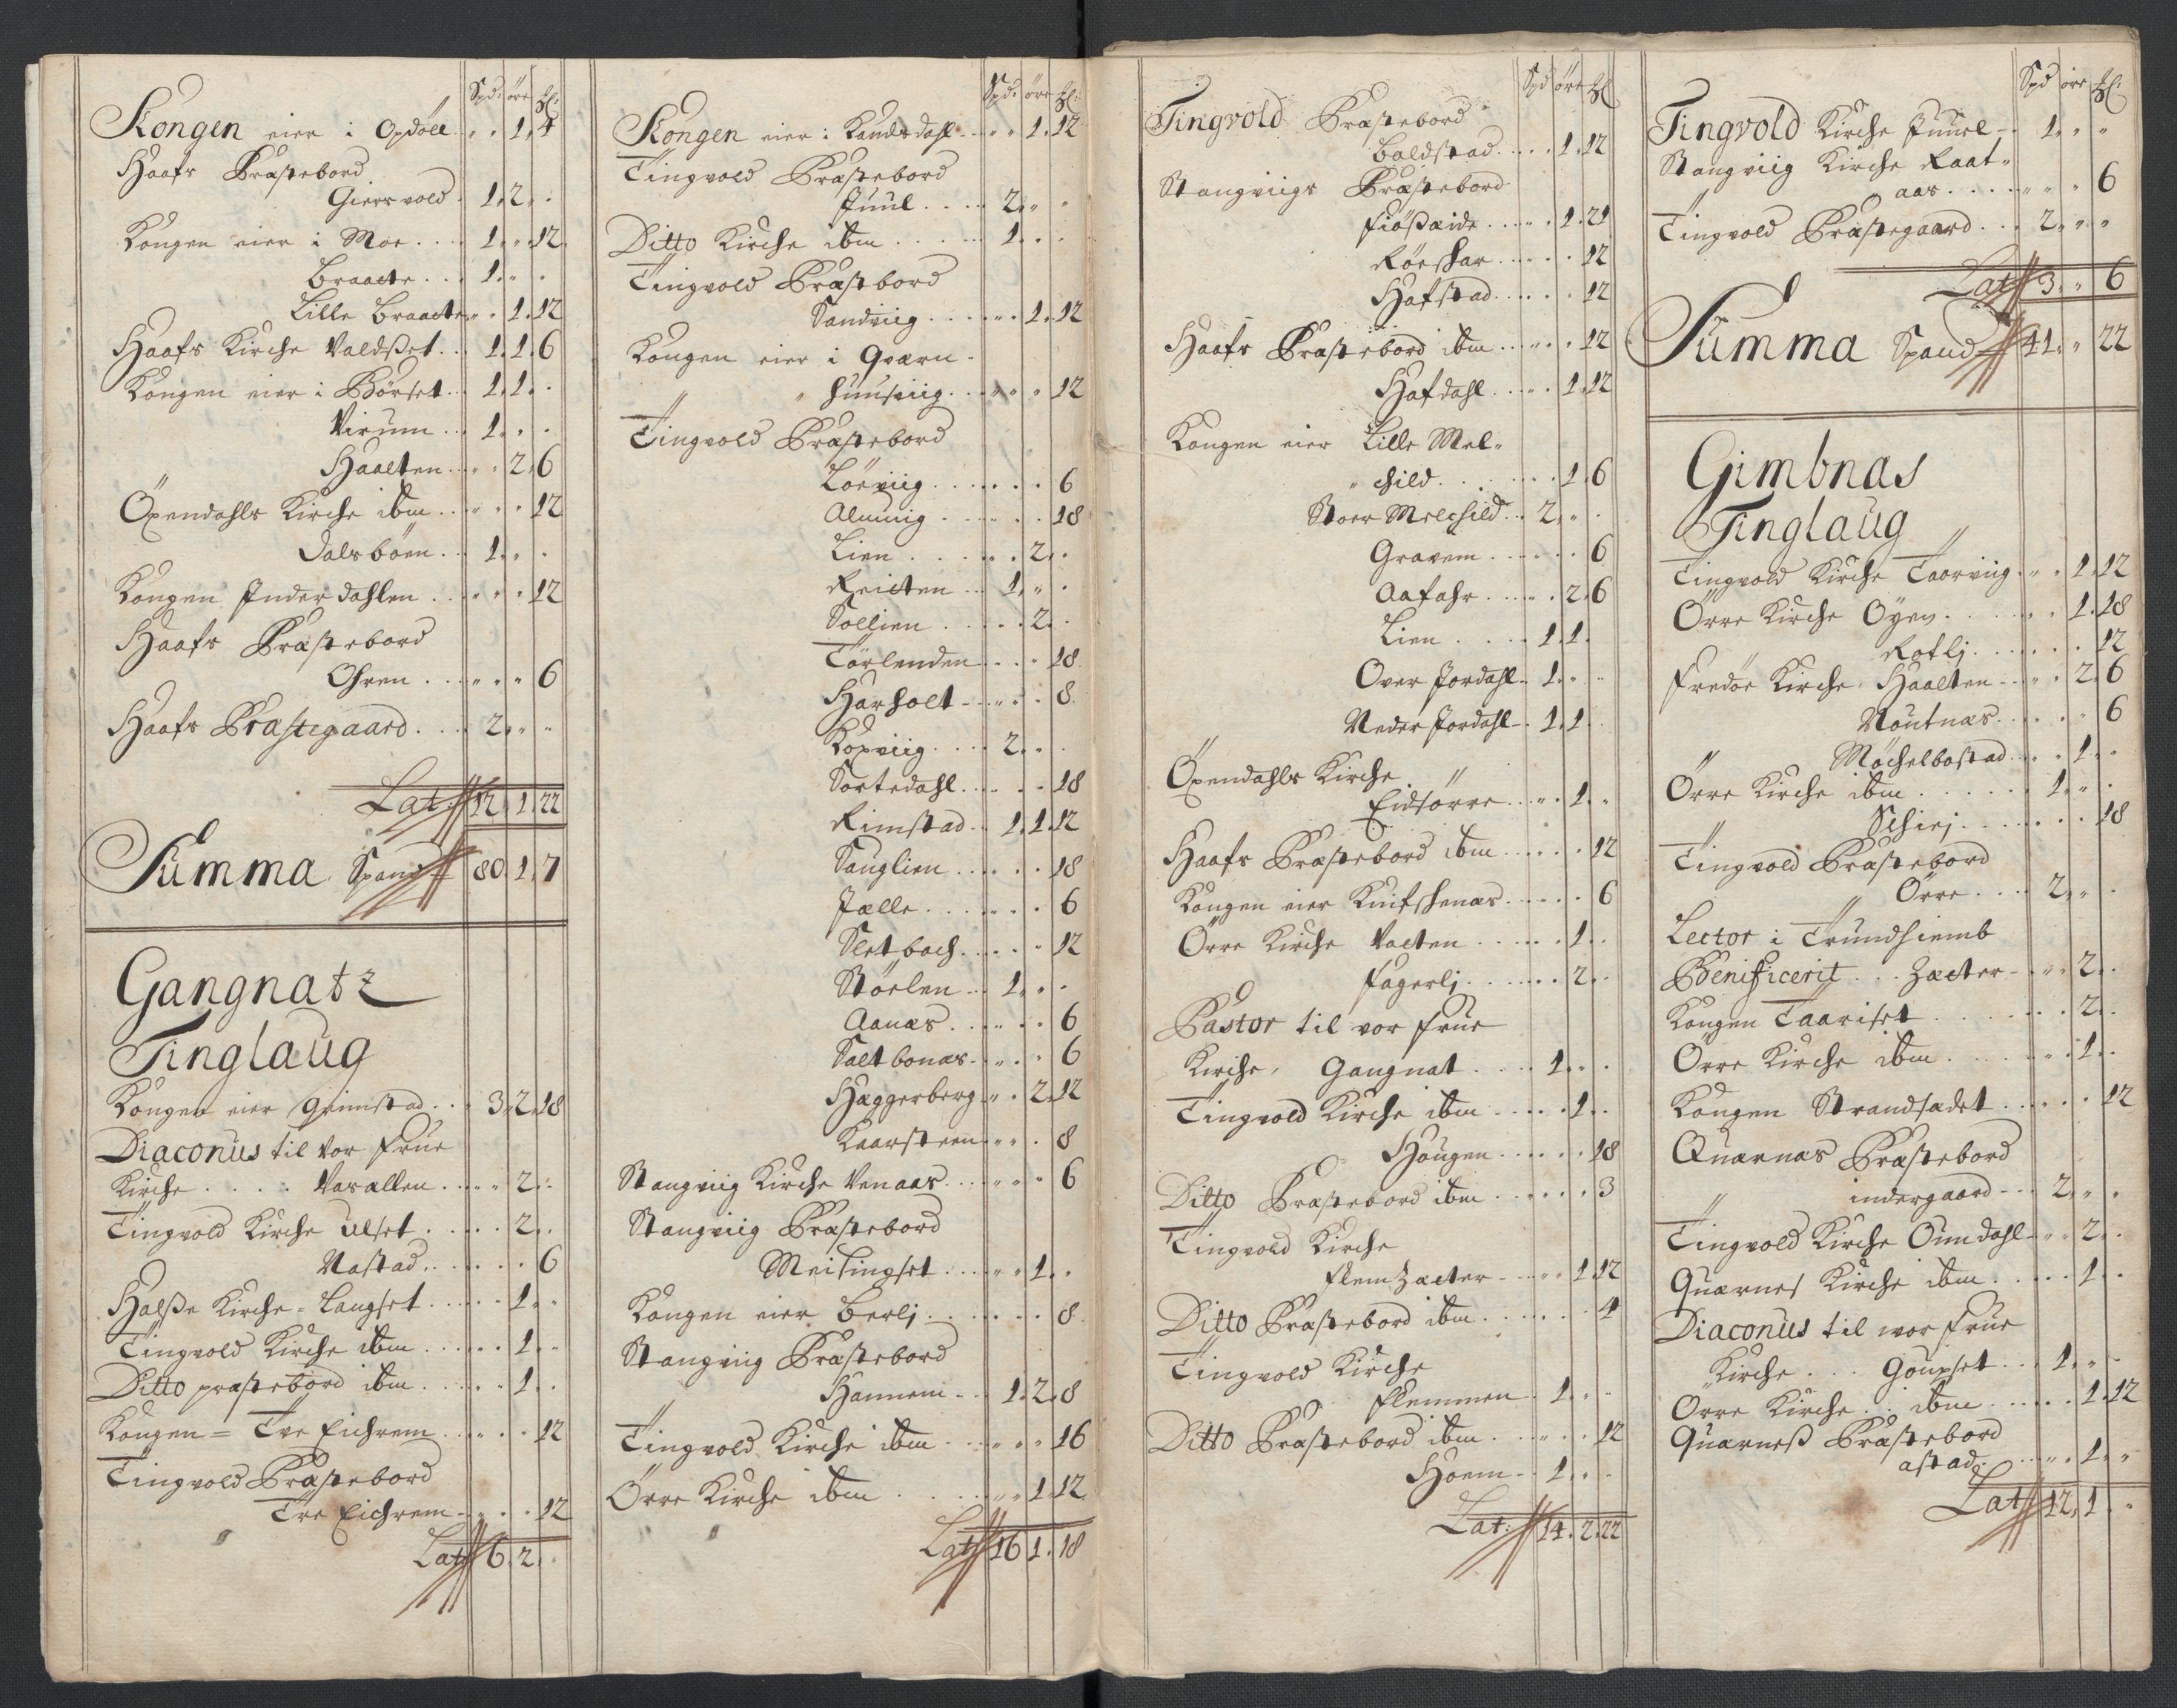 Spd: öre ℔:
Kongen eier i Opdöll . . 1. 4
Haafs Præstebord
Giersvold . 1. 2. .
Kongen eier i Moe . . . 1. „ 12
Braacte . . 1. „ .
Lille Braacte „ . 1. 12
Haafs Kirche Valdßet . . 1. 1. 6
Kongen eier i Börset . . 1. 1. .
Virum . . 1. . .
Haalten . . „ 2. 6
Öxendahls Kirche ibm . . „ . 12
Dalsböen . . 1. „ .
Kongen Inderdahlen . . „ . 12
Haafs Præstebord
Ohren . . „ „ 6
Haafs Præstegaard . . . 2. „ .
Lat: 12. 1. 22
Summa Spand 80. 1. 7
Gangnatz
Tinglaug
Kongen eier Grimstad . . 3. 2. 18
Diaconus til vor frue
Kirche . . . . Vasallen . . „ 2. .
Tingvold Kirche Ulset . . . 2. .
Nastad . . . . 6
Halße Kirche = Langset . . . 1. „
Tingvold Kirche ibm . . . . 1. „
Ditto præstebord ibm . . . . 1. .
Kongen = Tre Eichrem . . . . 12
Tingvold Præstebord
Tre Eichrem „ . . 12
Lat 6. 2. .
Spd: öre ℔:
Kongen eier i . . . „ 1. 12
Tingvold Præstebord
Juul . . . 2. „ .
Ditto Kirche ibm . . . . 1. . .
Tingvold Præstbord
Sandviig . . . „ 1. 12
Kongen eier i Qværn-
„ huusviig . . „ „ 12
Tingvold Præstebord
Löeviig . . . . 6
Alnviig . . . . 18
Lien . . . . 2. .
Reicten . . 1. „ .
Sollien . . . . 2. .
Törlenden . . . 18
Harholt . . „ . 8
Koxviig . . . 2. „ .
Sortedahl . . . . 18
Rimstad . . 1. 1. 12
Sanglien . . . . 18
Jælle . . . . 6
Sletbach . . . . 12
Störlen . . 1. „ .
Aanæs . . „ . 6
Saltbonæs . . „ . 6
Hæggerberg . „ . 2. 12
Kaarsteen . „ . 8
Stangviig Kirche Venaas . . . „ „ 6
Stangviig Præstebord
Meisingset . . . „ 1. .
Kongen eier Berlj . . . . . 8
Stangviig Præstebord
Hannem . . 1. 2. 8
Tingvold Kirche ibm . . „ „ 16
Örre Kirche ibm . . . „ 1. 12
Lat 16. 1. 18
Spd öre ℔
Tingvold Præstebord
Boldstad . . . . 1. 12
Stangviigs Præstebord
Fiößæide . . „ . 1. 21
Röeskar . . . . 12
Hafstad . . . . 12
Haafs Præstebord ibm . . „ . 12
Hafdahl . . „ . 1. 12
Kongen eier Lille Mel-
„ child . . . . 1. 6
Stoer Melchild . . 2. „ .
Gravem . . . . . 6
Aafahr . . „ . 2. 6
Lien . . . 1. 1. .
Over Jordahl . 1. „ .
Neder Jordahl . 1. 1. .
Öxendahls Kirche „
Eidsörre . . „ . 1. „
Haafs Præstebord ibm . . . . 12
Kongen eier . . . . 6
Örre Kirche Vacten . . . . 1. .
Fagerlj . . . . 2. .
Pastor til vor frue
Kirche, Gangnat . . . 1. . .
Tingvold Kirche ibm . . . . 1. .
Hougen . . . . 18
Ditto Præstebord ibm . . . . 3
Tingvold Kirche
Flemzæter . . „ . 1. 12
Ditto Præstebord ibm . . . . 4
Tingvold Kirche
Flemmen . 1. „ .
Ditto Præstebord ibm . . „ . 12
Hoem . . 1. „ .
Lat: 14. 2. 22
Spd öre ℔:
Tingvold Kirche Juuel . . 1. „ „
Stangviig Kirche Raat„
aas . . . . „ „ 6
Tingvold Præstegaard . . 2. „ „
Lat 3. „ 6
Summa Spand 41. „ 22
Gimbnæs
Tinglaug
Tingvold Kirche Taarviig . „ . 1. 12
Örre Kirche Öyen . . . . 1. 18
Roflj . . . . 12
Fredöe Kirche Haalten . . „ . 2. 6
Noutnæs . . . „ 6
„ Möchelbostad . . . 1. .
Örre Kirche ibm . . . . . 1. „ .
„ Schiej . . . . 18
Tingvold Præstebord
„ Örre . . . 2. „ .
Lector i Trundhiemb
Benificerit . . . Zæter . . „ 2. .
Kongen Taariset . . . . . 2. .
Örre Kirche ibm . . . . „ 1. .
Kongen Strandsædet . . . . 12
Quærnæs Præstebord
„ indergaard . . . 2. „ .
Tingvold Kirche Ounndahl . „ 2. .
Quærnes Kirche ibm . . . . 1. .
Diaconus til vor frue
Kirche . . . Goupset . . . 1. „ .
Örre Kirche . . ibm . . . . 1. 12
Quærneß Præstebord
astad . . „ . 1. „
Lat 12. 1. „